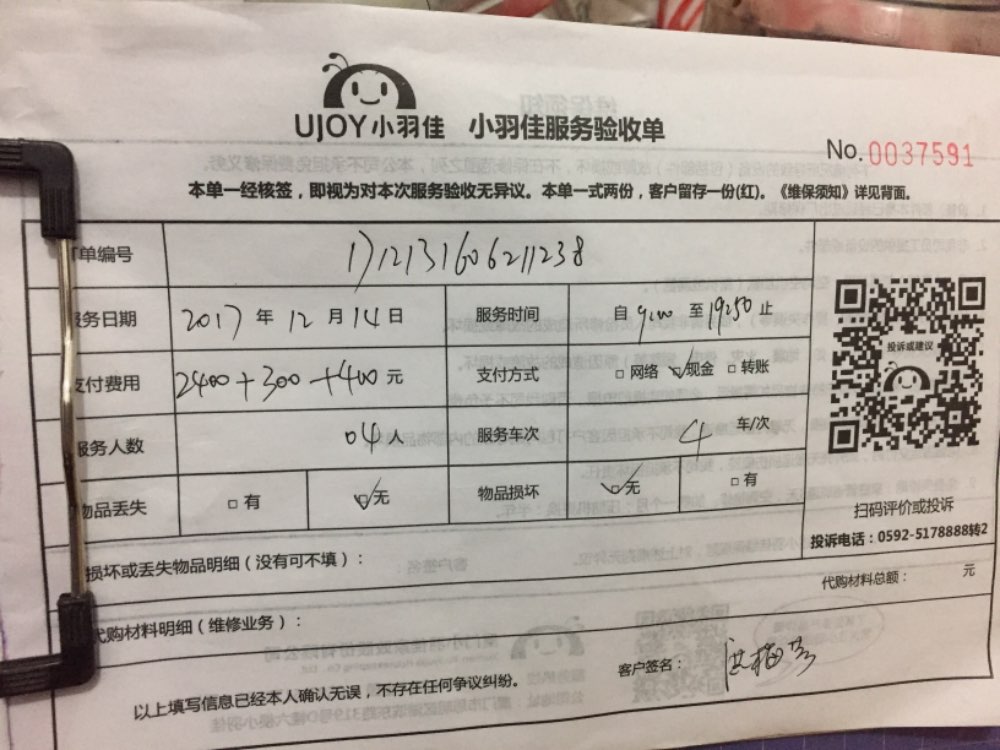 UJOY小羽佳 小羽佳服务验收单
No. 0037591
本单一经核签，即视为对本次服务验收无异议。本单一式两份，客户留存一份(红)。《维保须知》详见背面。
单编号 1712131606211238
务日期 2017年12月14日 服务时间 自9:00至19:50止
支付费用 2400+300+400元 支付方式 □网络 ☑现金 □转账
投诉或建议
服务人数 04人 服务车次 4车/次
物品丢失 □有 ☑无 物品损坏 ☑无 □有
扫码评价或投诉
投诉电话：0592-5178888转2
损坏或丢失物品明细（没有可不填）：
代购材料总额： 元
代购材料明细（维修业务）：
客户签名：
以上填写信息已经本人确认无误，不存在任何争议纠纷。